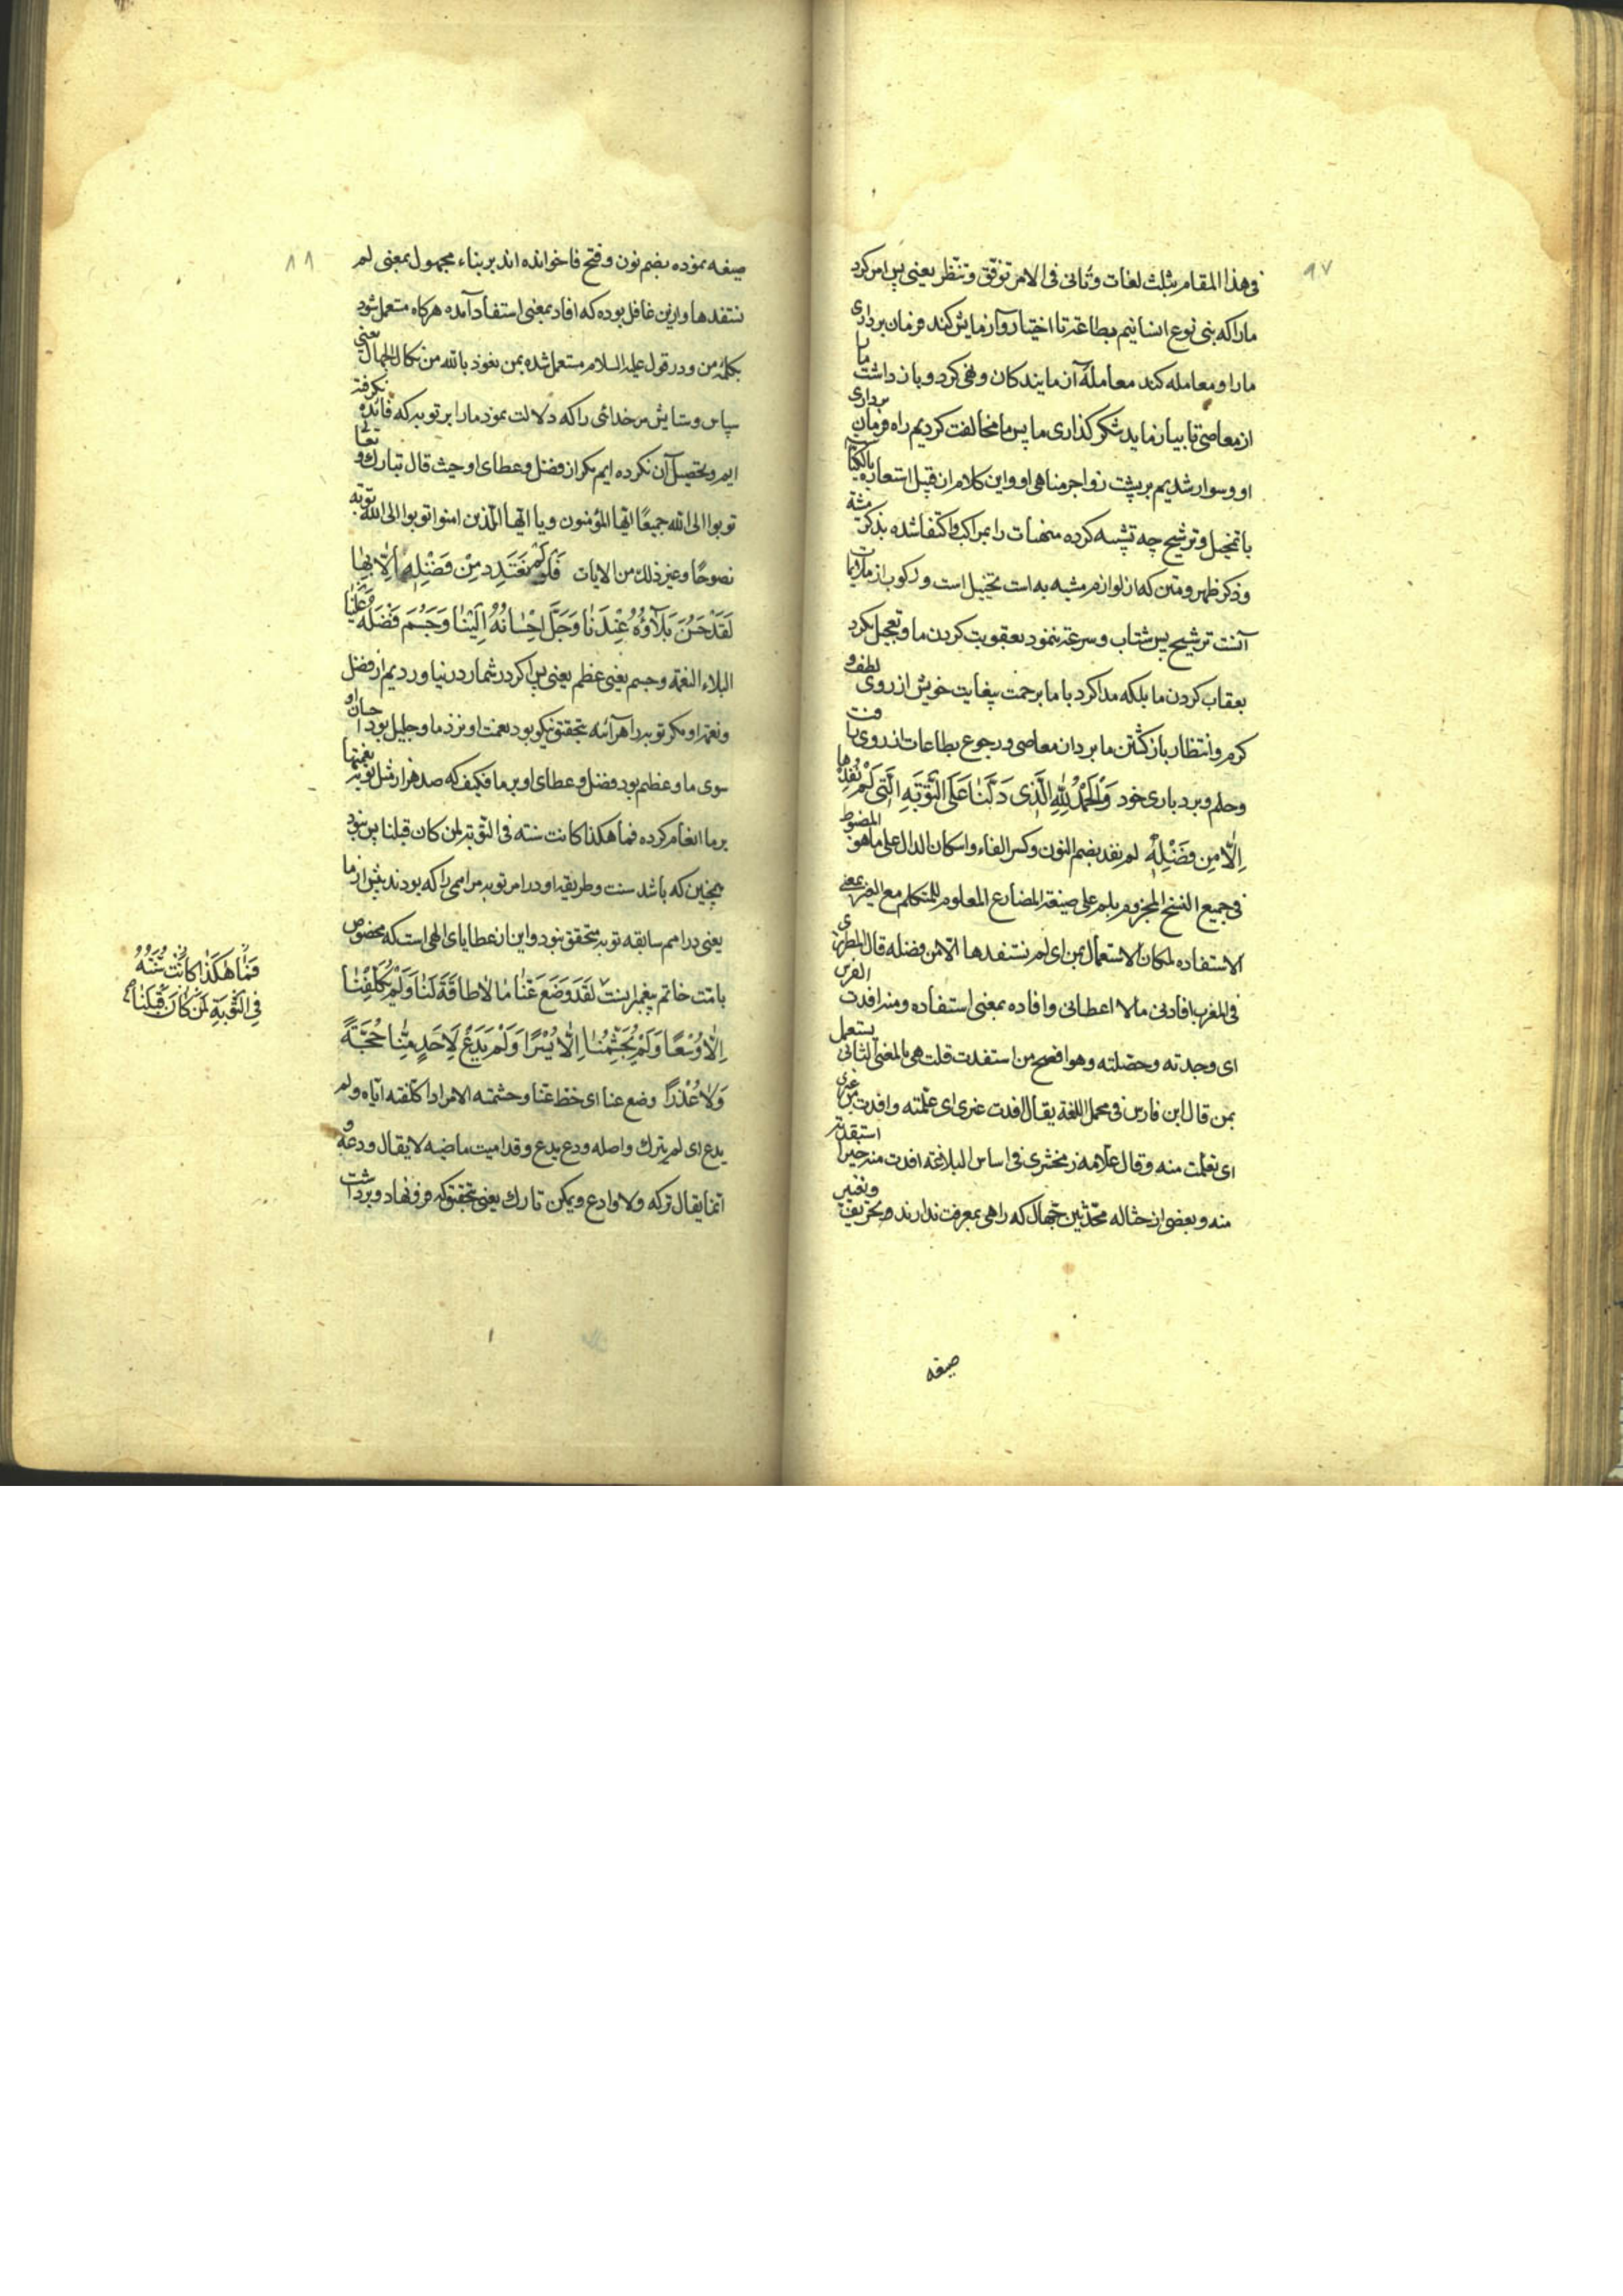 ٩٧
فی هذا المقام بثلث لغات و تأنی فی الامر ترفق و تنظر یعنی پس امر کرد
ما را که بنی نوع انسانیم بطاعة تا اختیار و آزمایش کند فرمان برداری
ما را و معامله کند معاملهٔ آزمایندکان و نهی کرد و باز داشت ما را
از معاصی تا بیازماید شکر کذاری ما پس ما مخالفت کردیم راه فرمان برداری
او و سوار شدیم بر پشت زواجر مناهی او و این کلام از قبیل استعاره بالکنایه
با تخییل و ترشیح چه تشبیه کرده منهیات را بمراکب و اکتفا شده بذکر مشبه
و ذکر ظهر و متن که از لوازم مشبه به است تخییل است و رکوب از ملایمات
آنست ترشیح پس شتاب و سرعة ننمود بعقوبت کردن ما و تعجیل نکرد
بعقاب کردن ما بلکه مدارا کرد با ما برحمت بیغایت خویش از روی لطف و
کرم و انتظار بازکشتن ما بردان معاصی و رجوع بطاعات از روی رافت
و حلم و بردباری خود وَالْحَمْدُ لِلّٰهِ الَّذی دَلَّنَا عَلَی التَّوْبَةِ الَّتی لَمْ نُفِدْهَا
اِلّا مِن فَضْلِهِ لم نفد بضم النون و کسر الفاء و اسکان الدال علی ما هو المضبوط
فی جمیع النسخ المجزوم بلم علی صیغة المضارع المعلوم للمتکلم مع الغیر بمعنی
الاستفاده لمکان الاستعمال بمن ای لم نستفدها الا من فضله قال المطرزی
فی المغرب افادنی مالا اعطانی و افاده بمعنی استفاده و منه افدت الفرس
ای وجدته و حصلته و هو افصح من استفدت قلت هی بالمعنی الثانی یستعمل
بمن قال ابن فارس فی مجمل اللغة یقال افدت غیری ای علمته و افدت من غیری
ای تعلمت منه و قال علامه زمخشری فی اساس البلاغة افدت منه خیرا استفدته
منه و بعضی از حثاله محدثین جهال که راهی بمعرفت ندارند و تحریف و تغییر
صیغه
١١
صیغه نموده بضم نون و فتح فا خوانده اند بر بناء مجهول بمعنی لم
نستفدها و ازین غافل بوده که افاد بمعنی استفاد آمده هرکاه مستعمل شود
بکلمهٔ من و در قول علیه السلام مستعمل شده بمن نعوذ بالله من نکال الجهال یعنی
سپاس و ستایش مر خدائی را که دلالت نمود ما را بر توبه که فائده نکرفته
ایم و تحصیل آن نکرده ایم مکر از فضل و عطای او حیث قال تبارک و تعالی
توبوا الی الله جمیعًا ایّها المؤمنون و یا ایّها الّذین امنوا توبوا الی الله توبة
نصوحًا و غیر ذلک من الایات فَلَوْ لَمْ نَعْتَدِدْ مِنْ فَضْلِهِ اِلّا بِهَا
لَقَدْ حَسُنَ بَلَاؤُهُ عِنْدَنَا وَجَلَّ اِحْسَانُهُ اِلَیْنَا وَجَسُمَ فَضْلُهُ عَلَیْنَا
البلاء النعمة و جسم یعنی عظم یعنی پس اکر در شمار در نیاوردیم از فضل
و نعمة او مکر توبه را هر آئنه بتحقیق نیکو بود نعمت او نزد ما و جلیل بود احسان او
سوی ما و عظیم بود فضل و عطای او بر ما فکیف که صد هزار مثل توبه نعمتها
بر ما انعام کرده فما هکذا کانت سنته فی التوبة لمن کان قبلنا پس نبود
همچنین که باشد سنت و طریقه او در امر توبه مر امی را که بودند پیش از ما
یعنی در امم سابقه توبه متحقق نبود و این از عطایای الهی است که مخصوص
بامت خاتم پیغمبرانست لَقَدْ وَضَعَ عَنَّا مَا لاطَاقَةَ لَنَا وَلَمْ یُکَلِّفْنَا
اِلّا وُسْعًا وَلَمْ یُجَشِّمْنَا اِلّا یُسْرًا وَلَمْ یَدَعْ لِاَحَدٍ مِنَّا حُجَّةً
وَلا عُذْرًا وضع عنا ای حط عنا و جشمته الامر اذا کلفته ایاه و لم
یدع ای لم یترک و اصله ودع یدع و قد امیت ماضیه لا یقال ودعه و
انما یقال ترکه و لا وادع و یمکن تارک یعنی بتحقیق که فرو نهاد و برداشت
فَمَا هَکَذَا کَانَتْ سُنَّتُهُ
فِی التَّوْبَةِ لِمَنْ کَانَ قَبْلَنَا